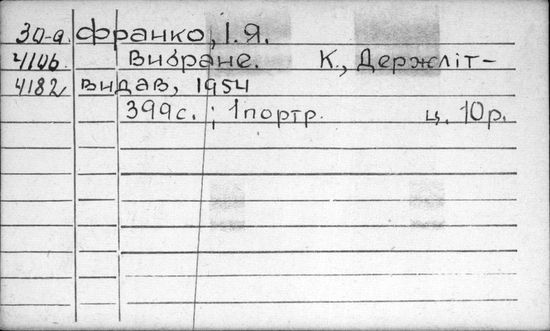 30-а. Франко, І.Я.
4106 Вибране. К., Держліт-
4182 видав, 1954
399с.; 1портр. ц. 10р.